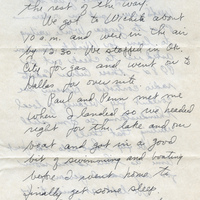 the rest of the way.
We got to Wichita about
10 a.m. and were in the air
by 12:30. We stopped in
City for gas and went on to
Dallas for over nite.
Paul and Penn met me
when I landed so we headed
right for the lake and our
boat and got in a good
bit of swimming and boating
before I went home to
finally get some sleep